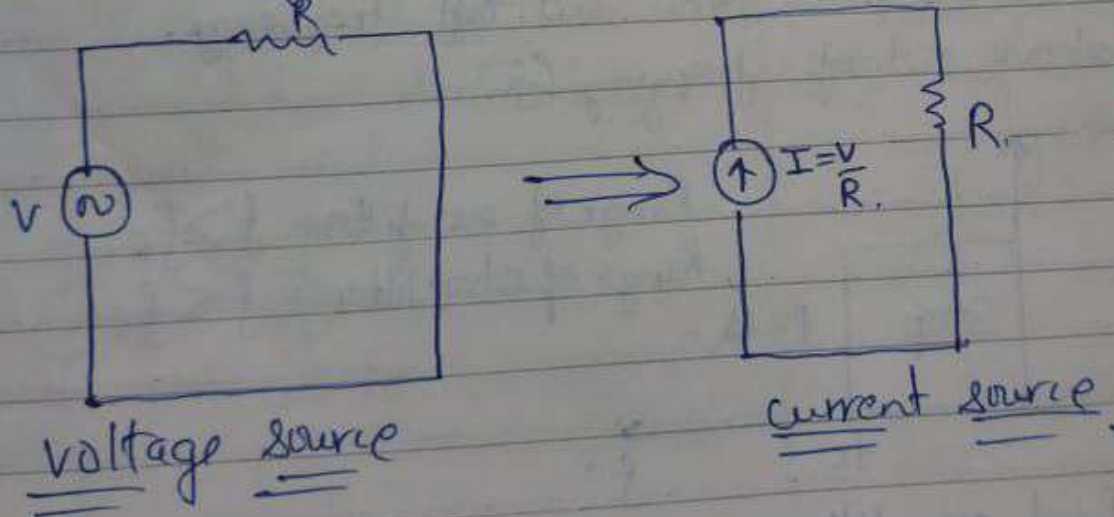 R
V
I=V/R.
R.
voltage source
current source.